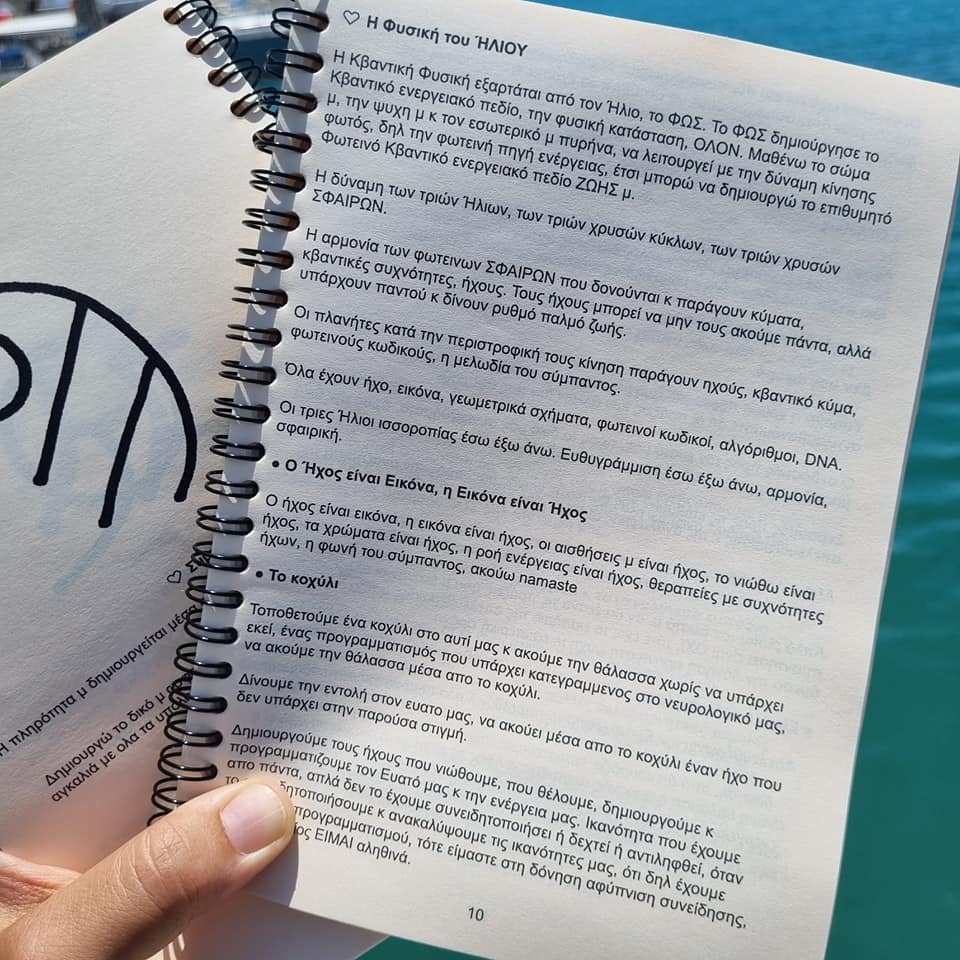 ♡ Η Φυσική του ΉΛΙΟΥ
Η Κβαντική Φυσική εξαρτάται από τον Ήλιο, το ΦΩΣ. Το ΦΩΣ δημιούργησε το
Κβαντικό ενεργειακό πεδίο, την φυσική κατάσταση, ΟΛΟΝ. Μαθένω το σώμα
μ, την ψυχη μ κ τον εσωτερικό μ πυρήνα, να λειτουργεί με την δύναμη κίνησης
φωτός, δηλ την φωτεινή πηγή ενέργειας, έτσι μπορώ να δημιουργώ το επιθυμητό
Φωτεινό Κβαντικό ενεργειακό πεδίο ΖΩΗΣ μ.
Η δύναμη των τριών Ήλιων, των τριών χρυσών κύκλων, των τριών χρυσών
ΣΦΑΙΡΩΝ.
Η αρμονία των φωτεινων ΣΦΑΙΡΩΝ που δονούνται κ παράγουν κύματα,
κβαντικές συχνότητες, ήχους. Τους ήχους μπορεί να μην τους ακούμε πάντα, αλλά
υπάρχουν παντού κ δίνουν ρυθμό παλμό ζωής.
Οι πλανήτες κατά την περιστροφική τους κίνηση παράγουν ηχούς, κβαντικό κύμα,
φωτεινούς κωδικούς, η μελωδία του σύμπαντος.
Όλα έχουν ήχο, εικόνα, γεωμετρικά σχήματα, φωτεινοί κωδικοί, αλγόριθμοι, DNA.
Οι τριες Ήλιοι ισσοροπίας έσω έξω άνω. Ευθυγράμμιση έσω έξω άνω, αρμονία,
σφαιρική.
• Ο Ήχος είναι Εικόνα, η Εικόνα είναι Ήχος
Ο ήχος είναι εικόνα, η εικόνα είναι ήχος, οι αισθήσεις μ είναι ήχος, το νιώθω είναι
ήχος, τα χρώματα είναι ήχος, η ροή ενέργειας είναι ήχος, θεραπείες με συχνότητες
ήχων, η φωνή του σύμπαντος, ακούω namaste
• Το κοχύλι
Τοποθετούμε ένα κοχύλι στο αυτί μας κ ακούμε την θάλασσα χωρίς να υπάρχει
εκεί, ένας προγραμματισμός που υπάρχει κατεγραμμενος στο νευρολογικό μας,
να ακούμε την θάλασσα μέσα απο το κοχύλι.
Δίνουμε την εντολή στον ευατο μας, να ακούει μέσα απο το κοχύλι έναν ήχο που
δεν υπάρχει στην παρούσα στιγμή.
Δημιουργούμε τους ήχους που νιώθουμε, που θέλουμε, δημιουργούμε κ
προγραμματιζουμε τον Ευατό μας κ την ενέργεια μας. Ικανότητα που έχουμε
απο πάντα, απλά δεν το έχουμε συνειδητοποιήσει ή δεχτεί ή αντιληφθεί, όταν
δητοποιήσουμε κ ανακαλύψουμε τις ικανότητες μας, ότι δηλ έχουμε
προγραμματισμού, τότε είμαστε στη δόνηση αφύπνιση συνείδησης,
ΕΙΜΑΙ αληθινά.
10
Η πληρότητα μ δημιουργείται μέσα
Δημιουργώ το δικό μ
αγκαλιά με ολα τα